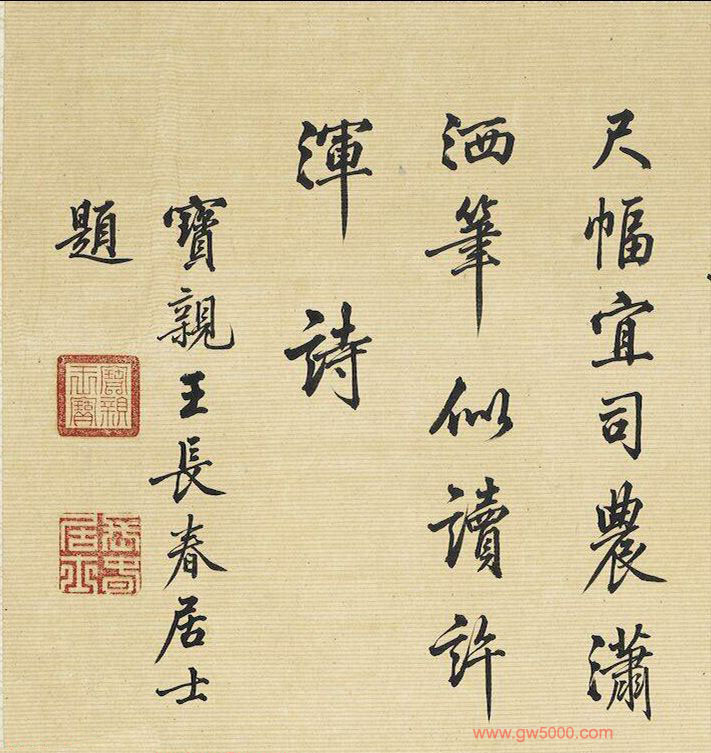 尺幅宜司農瀟
洒筆似讀許
渾詩
寶親王長春居士
題
寶親王寶
長春居士
www.gw5000.com